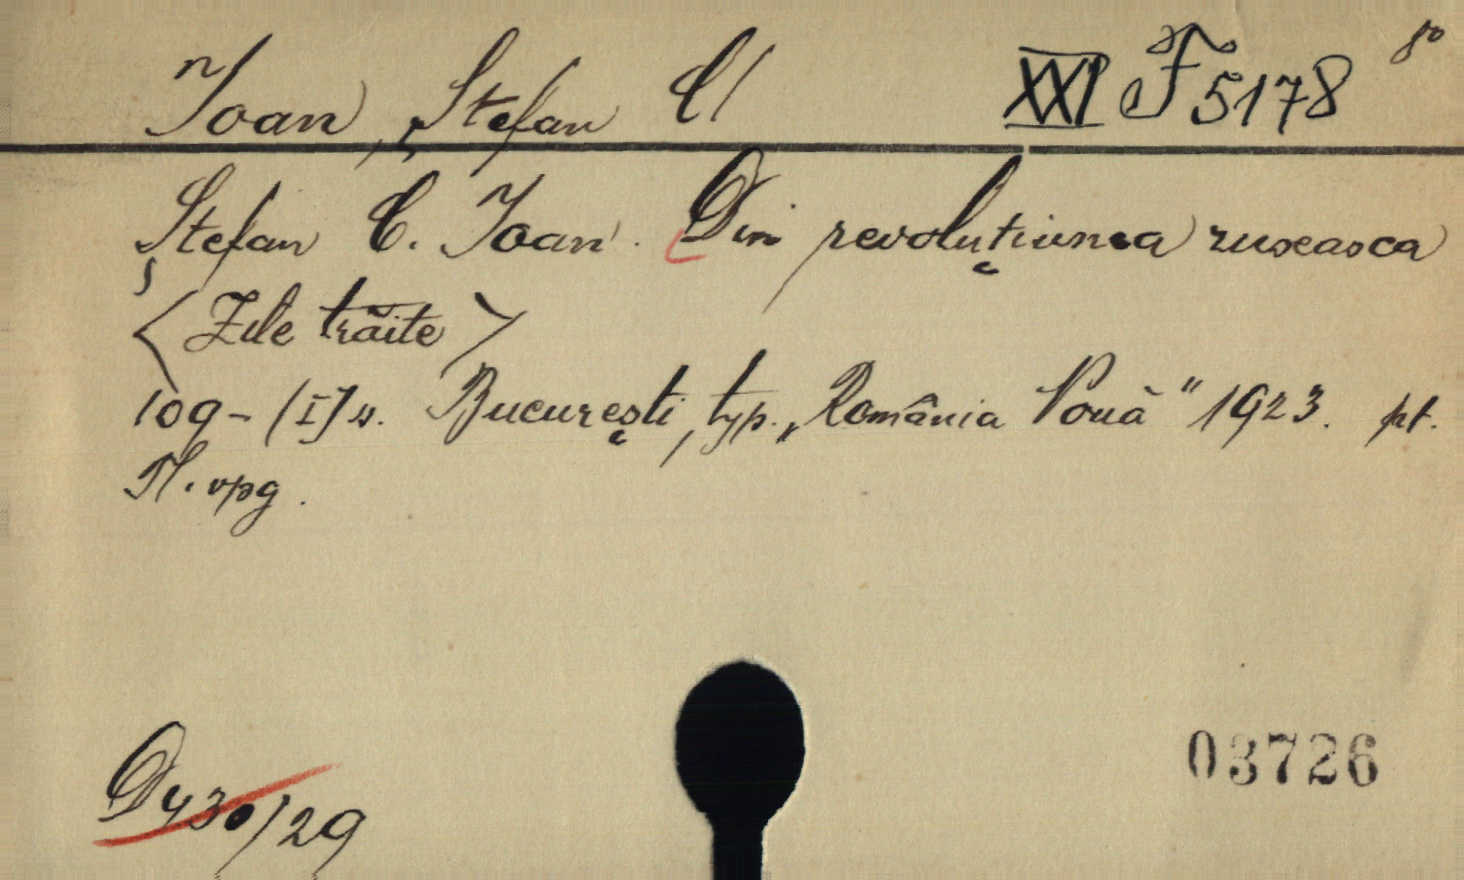 Ioan, Ștefan C/ XXI F 5178 8°
Ștefan C. Ioan. Din revoluțiunea ruseasca
<Zile trăite>
109-(I] s. București, typ. „România Nouă" 1923. pt.
03726
Dy30/29